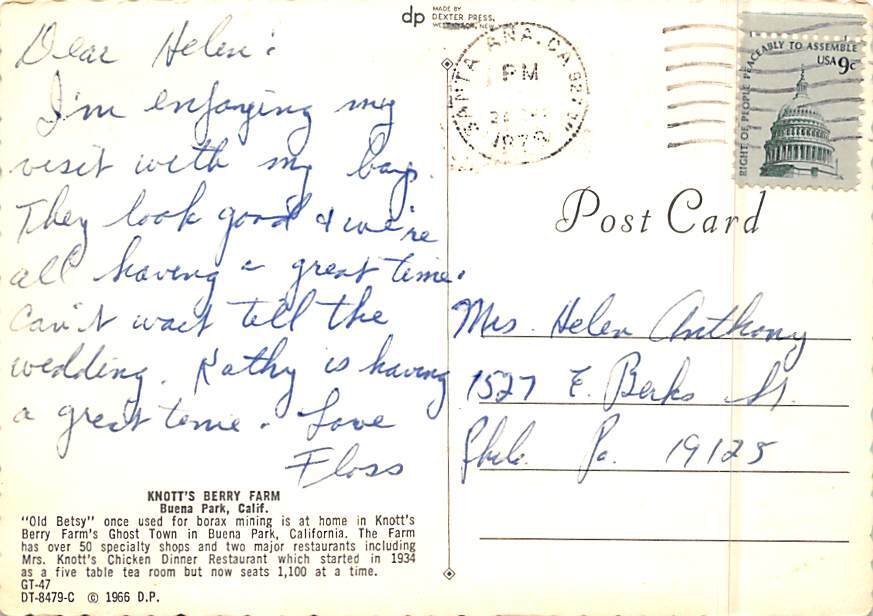 dp MADE BY
DEXTER PRESS,
Dear Helen:
I'm enjoying my
visit with my boys.
They look good & we're
all having a great time.
Can't wait tell the
wedding. Kathy is having
a great time. Love
Floss
KNOTT'S BERRY FARM
Buena Park, Calif.
"Old Betsy" once used for borax mining is at home in Knott's
Berry Farm's Ghost Town in Buena Park, California. The Farm
has over 50 specialty shops and two major restaurants including
Mrs. Knott's Chicken Dinner Restaurant which started in 1934
as a five table tea room but now seats 1,100 at a time.
GT-47
DT-8479-C © 1966 D.P.
SANTA ANA, CA 927
PM
RIGHT OF PEOPLE PEACEABLY TO ASSEMBLE
USA 9c
Post Card
Mrs. Helen Anthony
1527 E. Berks St.
Phila. Pa. 19125